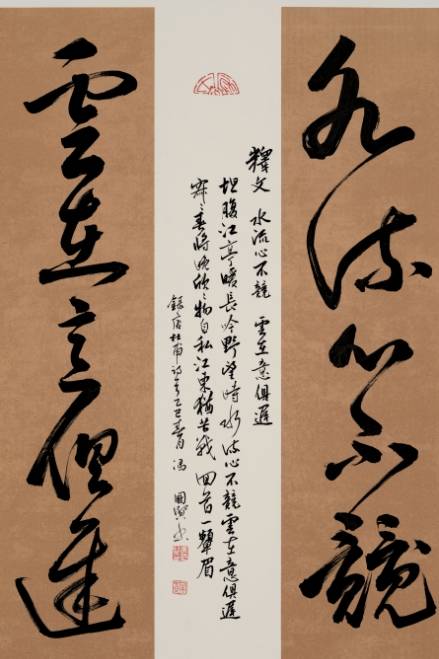 水流心不競
釋文 水流心不競 雲在意俱遲
坦腹江亭暖長吟野望時水流心不競雲在意俱遲
寂〻春將晚欣〻物自私江東猶苦戰回首一顰眉
錄唐杜甫詩乙巳春月馮
雲在意俱遲